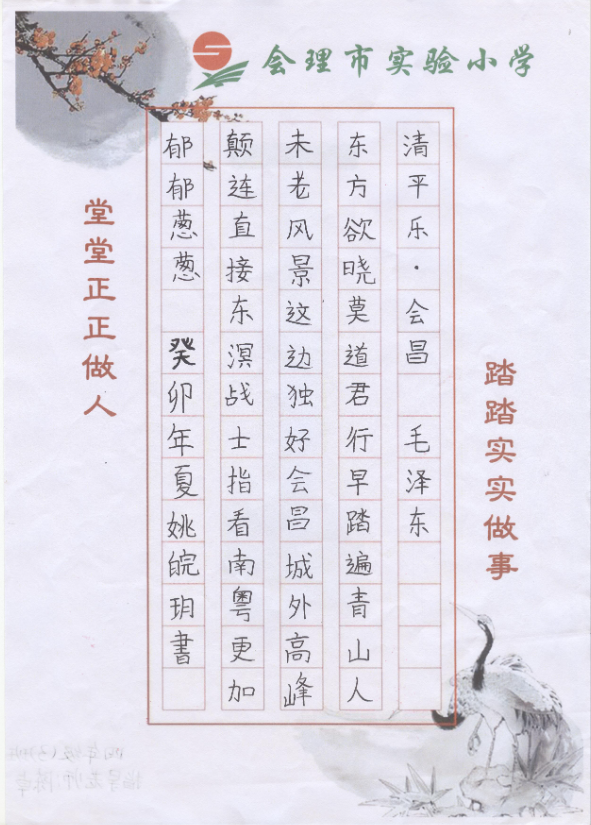 会理市实验小学
踏踏实实做事
清平乐·会昌 毛泽东
东方欲晓莫道君行早踏遍青山人
未老风景这边独好会昌城外高峰
颠连直接东溟战士指看南粤更加
郁郁葱葱 癸卯年夏姚皖玥書
堂堂正正做人